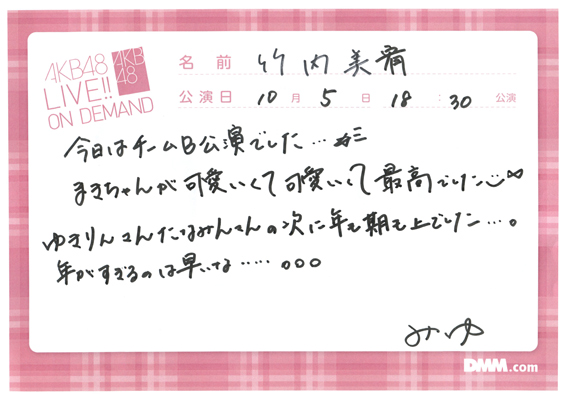 AKB48
LIVE!!
ON DEMAND
AKB
48
名 前 竹内美宥
公演日 10 月 5 日 18 : 30 公演
今日はチームB公演でした…
まきちゃんが可愛いくて可愛いくて最高でした
ゆきりんさんたなみんさんの次に年も期も上でした…。
年がすぎるのは早いな……。。。
みゆ
DMM.com